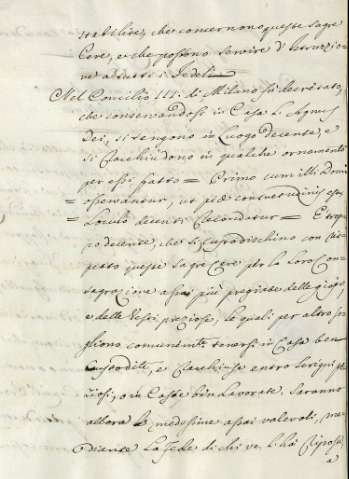 stabilire, che concernono queste sagre
Cere, e che possono servire d'Istruzio
ne a' devoti Fedeli
Nel Concilio III. di Milano fù decretato,
che conservandosi in Casa l'Agnus
Dei, si tengono in Luogo decente, e
si racchiudino in qualche ornamento
per essi fatto = Primo cum illi Domi
= asservantur, ut piæ consuetudinis est,
= Loculo decenti recondatur = E trop
po decente, che si custodischino con ris
petto queste sagre Cere per la loro Con
sagrazione assai più pregiate delle gioje,
e delle Vesti preziose, le quali per altro so
gliono comunemte. tenersi in Casa ben
custodite, e racchiuse entro Scrigni
o in Casse ben lavorate. Saranno
allora le medesime assai valevoli, me
diante la Fede di chi ve l'hà riposta
a